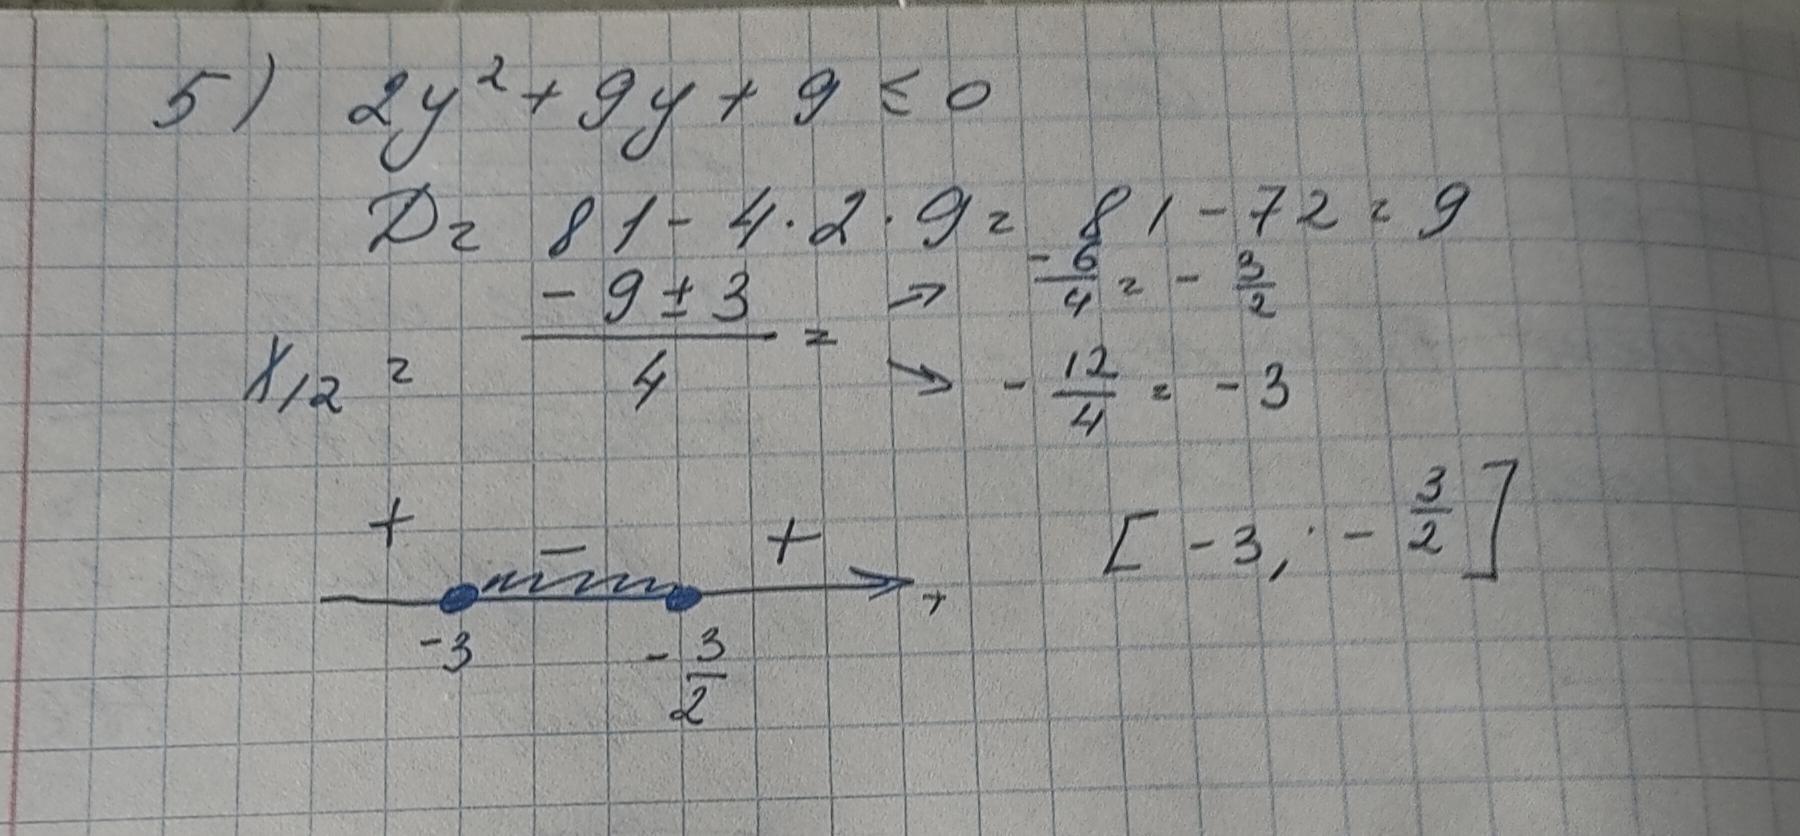 5) 2y² + 9y + 9 ≤ 0
D = 81 - 4 · 2 · 9 = 81 - 72 = 9
x₁₂ = (-9 ± 3)/4 = → -6/4 = -3/2
→ -12/4 = -3
+ - +
-3 -3/2
[-3; -3/2]